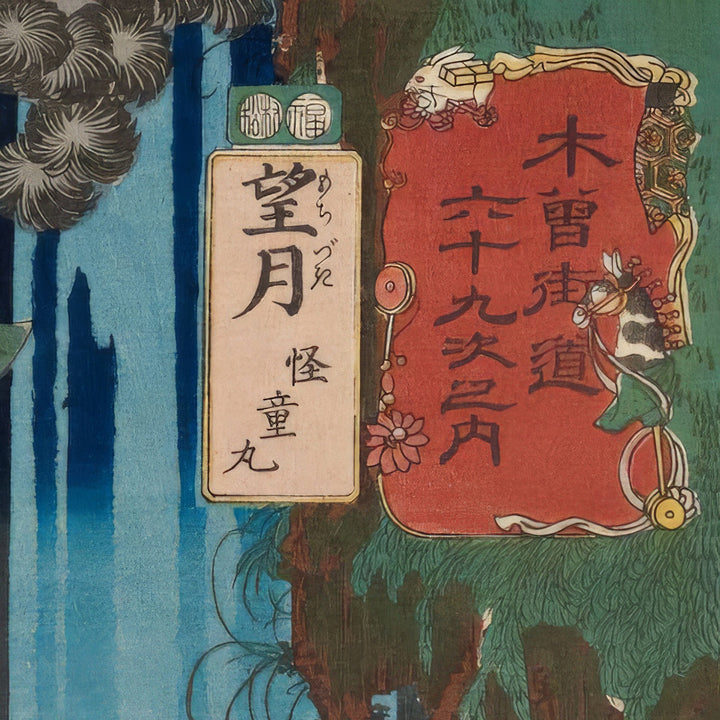 木曽街道
六十九次之内
望月
もちづき
怪童丸